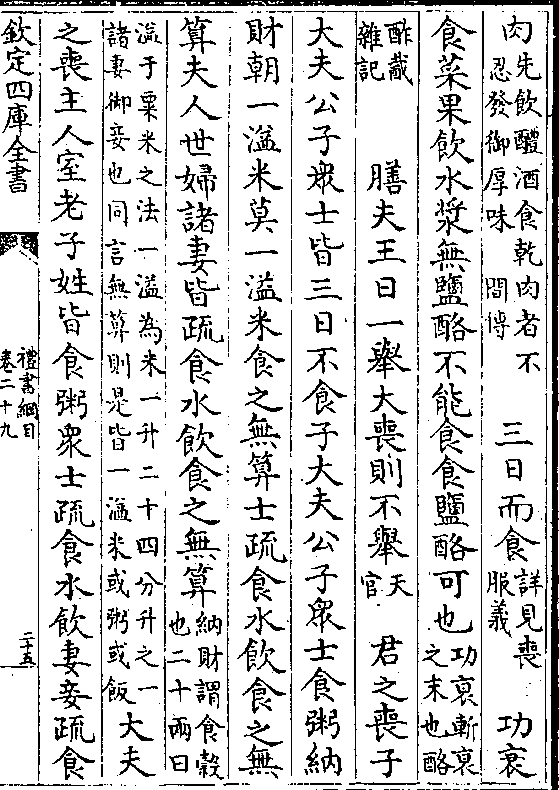 肉先飲醴酒食乾肉者不忍發御厚味 間傳 三日而食詳見喪服義 功衰
食菜果飲水漿無鹽酪不能食食鹽酪可也功衰斬衰之末也酪
酢酨雜記 膳夫王日一舉大喪則不舉天官 君之喪子
大夫公子衆士皆三日不食子大夫公子衆士食粥納
財朝一溢米莫一溢米食之無算士疏食水飲食之無
算夫人世婦諸妻皆疏食水飲食之無算納財謂食穀也二十兩曰
溢于粟米之法一溢為米一升二十四分升之一諸妻御妾也同言無算則是皆一溢米或粥或飯大夫
之喪主人室老子姓皆食粥衆士疏食水飲妻妾疏食
欽定四庫全書
禮書綱目
卷二十九
二十五